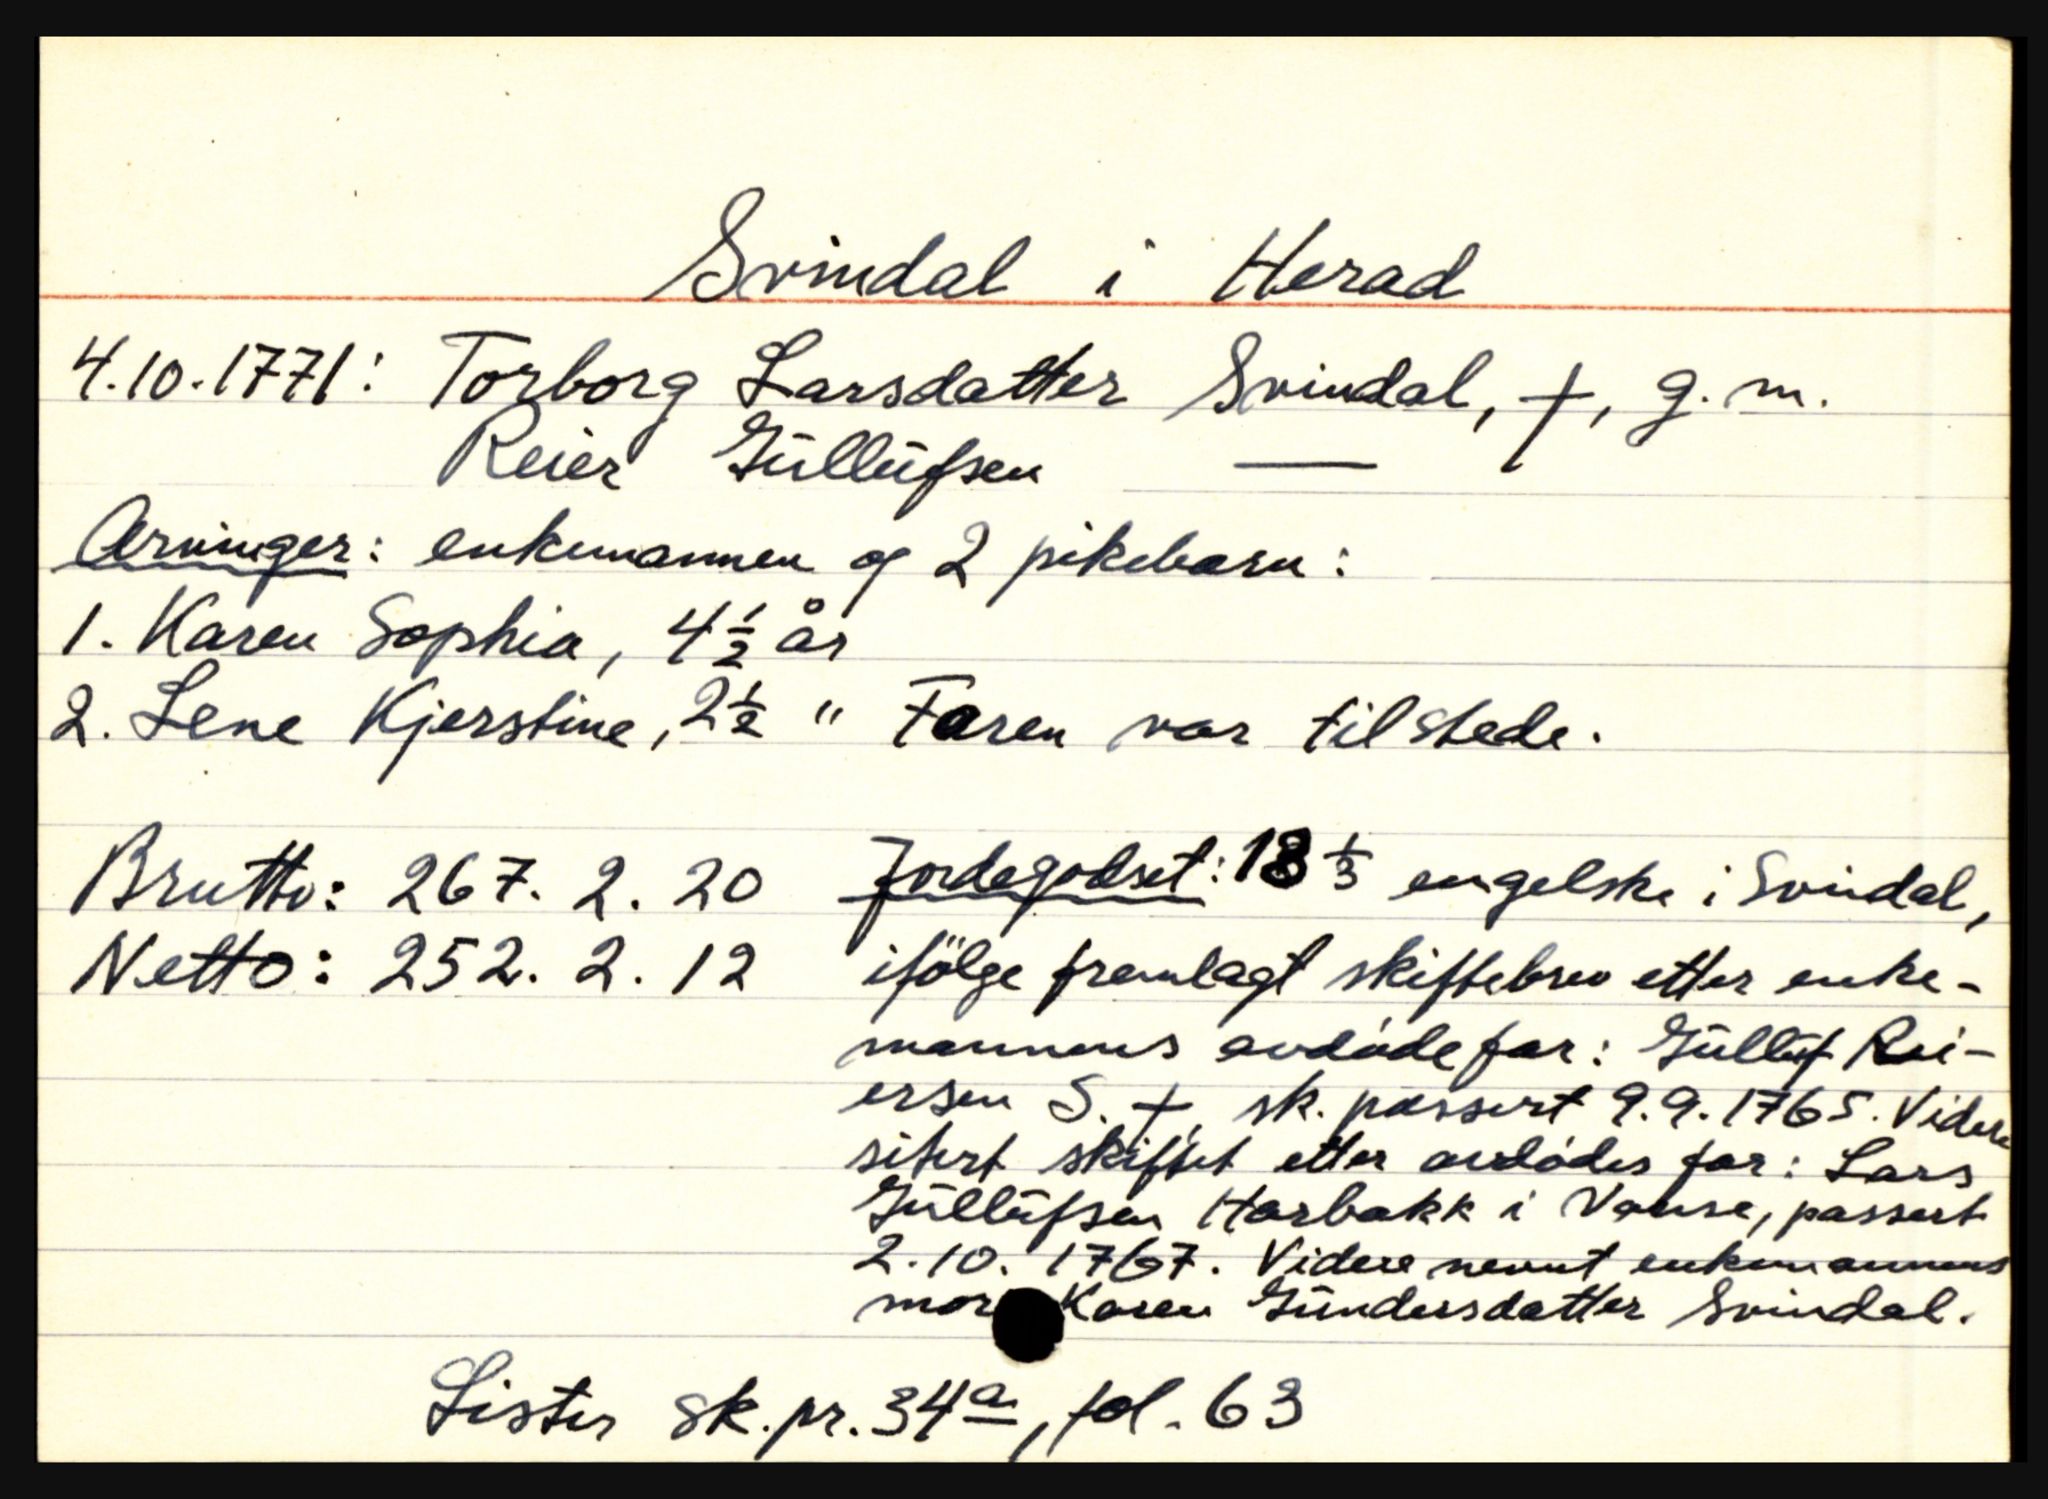 Svindal i Herad
4.10.1771: Torborg Larsdatter Svindal, †, g. m.
Reier Güllüfsen —
Arvinger: enkemannen og 2 pikebarn:
1. Karen Sophia, 4 1/2 år
2. Lene Kjerstine, 2 1/2 " Faren var tilstede.
Brutto: 267. 2. 20
Netto: 252. 2. 12
Jordegodset: 18 1/3 engelske i Svindal,
ifölge fremlagt skiftebrev etter enke-
mannens avdöde far: Güllüf Rei-
ersen S. †, sk. passert 9.9.1765. Videre
sitert skiftet etter avdödes far: Lars
Güllüfsen Harbakk i Vanse, passert
2.10. 1767. Videre nevnt enkemannens
mor Karen Gündersdatter Svindal.
Lister sk.pr. 34a, fol. 63